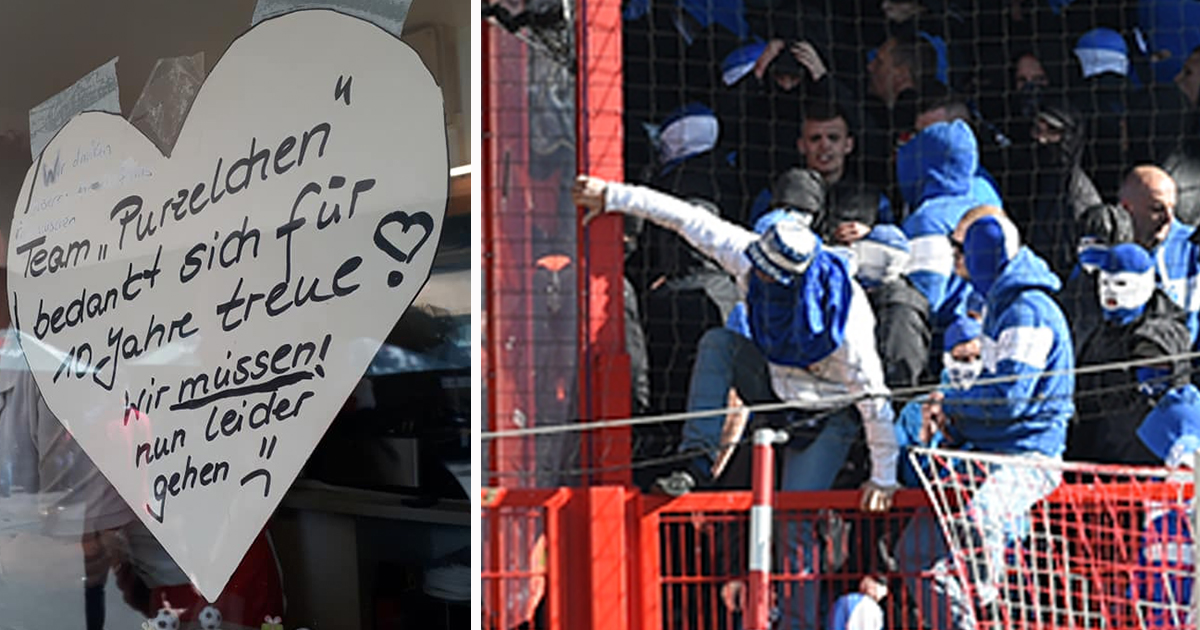 Wir danken
Team „Purzelchen"
bedankt sich für
10 Jahre treue!
wir müssen!
nun leider
gehen